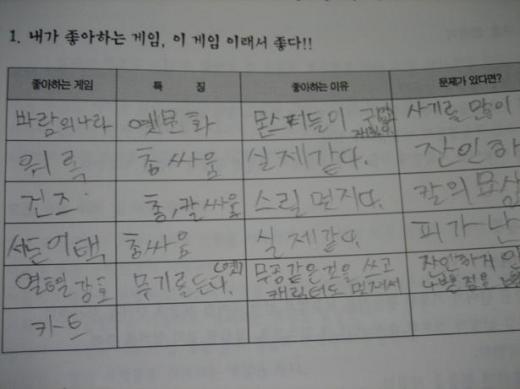 1. 내가 좋아하는 게임, 이 게임 이래서 좋다!!
좋아하는 게임 특 징 좋아하는 이유 문제가 있다면?
바람의나라 옛문화 몬스터들이 사기를 많이
워록 총싸움 실제같다. 잔인하
건즈 총,칼싸움 스릴 먼지다. 칼의 모상
서든어택 총싸움 실제같다. 피가 난
열혈강호 무기로든다. 무공같은것을 쓰고 잔인하게
캐릭터도 먼저서 나쁜점을
카트